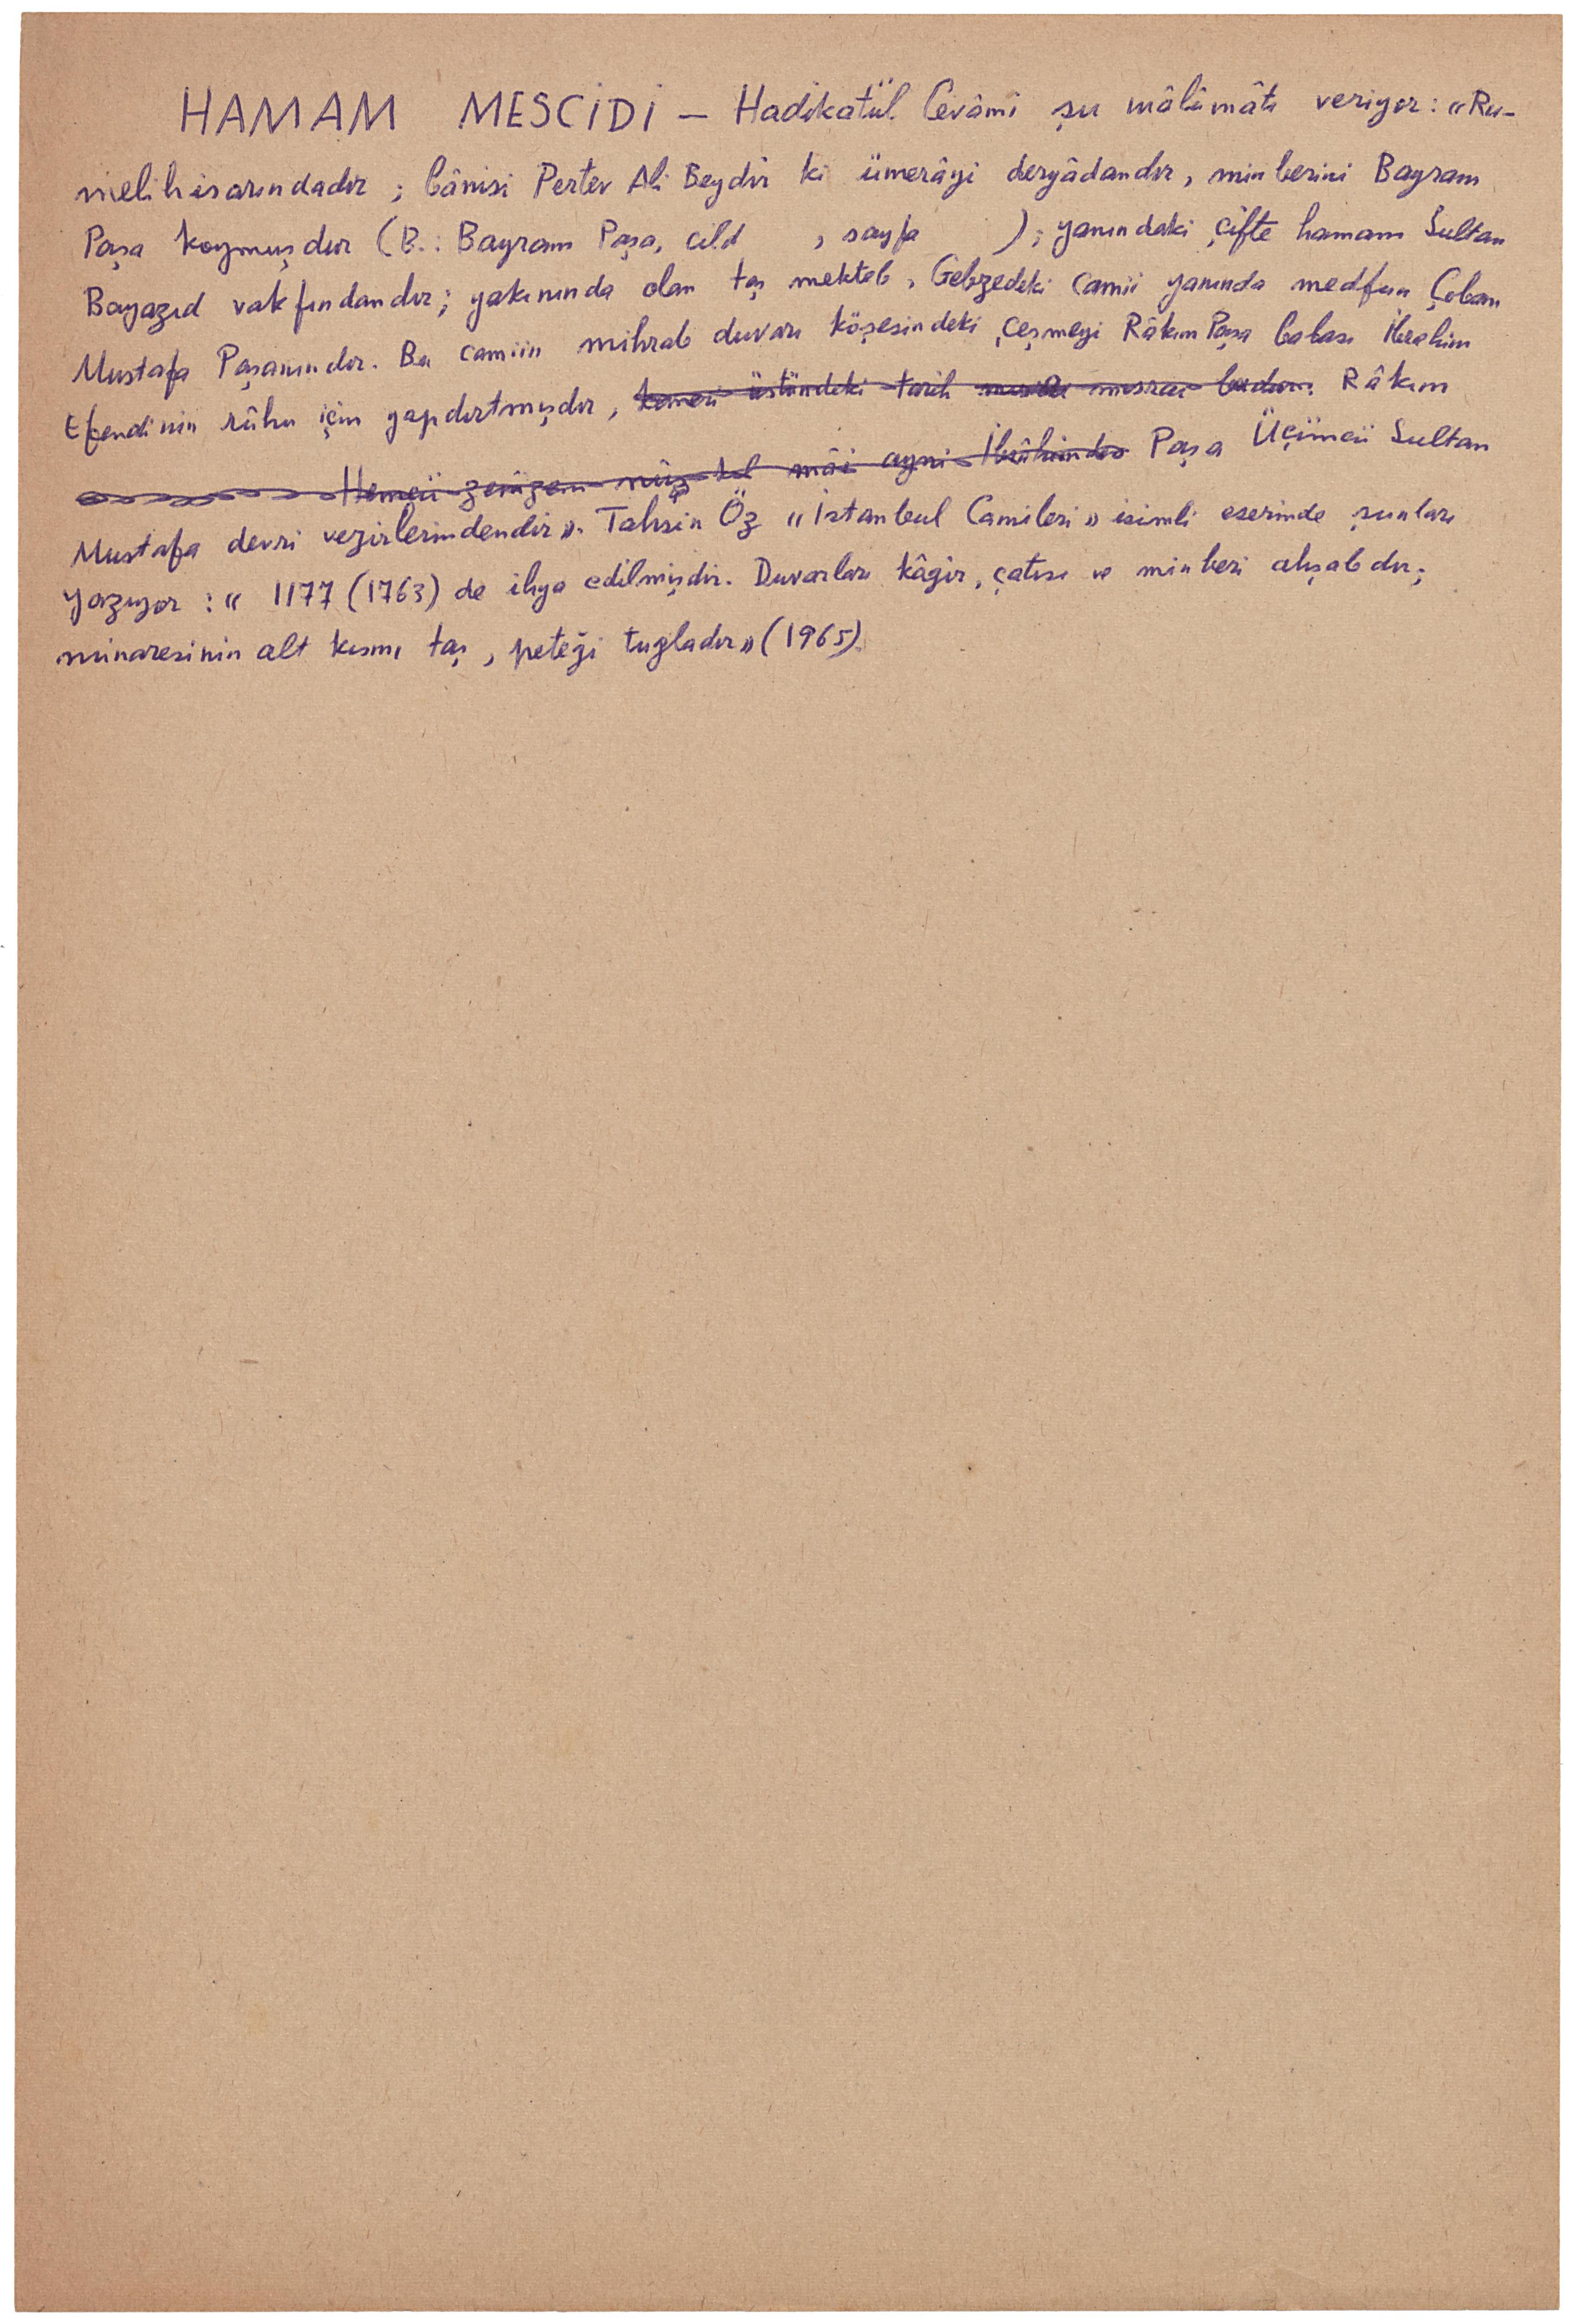 HAMAM MESCİDİ — Hadikatül Cevâmi şu mâlûmâtı veriyor: «Ru-
melihisarındadır; bânisi Pertev Ali Beydir ki ümerâyi deryâdandır, minberini Bayram
Paşa koymuşdur (B.: Bayram Paşa, cild , sayfa ); yanındaki çifte hamam Sultan
Bayazıd vakfındandır; yakınında olan taş mekteb, Gebzedeki camii yanında medfun Çoban
Mustafa Paşanındır. Bu camiin mihrab duvarı köşesindeki çeşmeyi Râkım Paşa babası İbrahim
Efendinin rûhu için yapdırtmışdır, kemeri üstündeki tarih mısraı budur: Râkım
Hemcü zemzem nûş kıl mâi ayni İbrâhimden Paşa Üçüncü Sultan
Mustafa devri vezirlerindendir». Tahsin Öz «İstanbul Camileri» isimli eserinde şunları
yazıyor: « 1177 (1763) de ihya edilmişdir. Duvarları kâgir, çatısı ve minberi ahşabdır;
minaresinin alt kısmı taş, peteği tugladır» (1965).